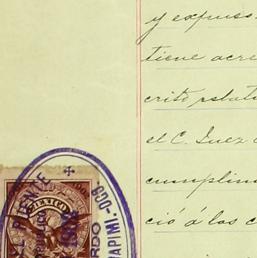 y expuso
tiene acre
crito relati
el C. Juez
cumplim
ció á los c
MEXICO
MAPIMI.-DGO.